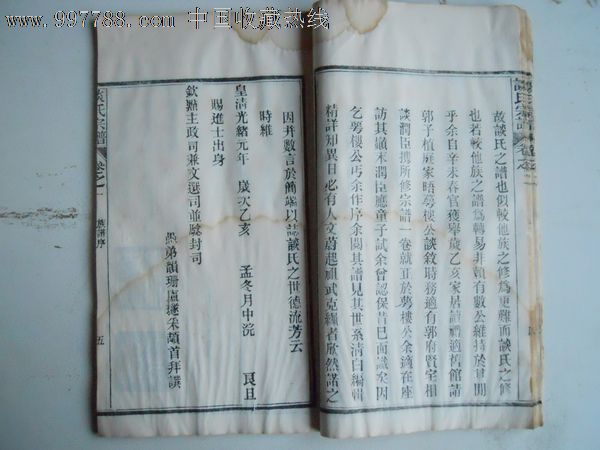 www.997788.com 中国收藏热线
談氏宗譜
故談氏之譜也似較他族之修爲更難而談氏之修
也若較他族之譜爲轉易非賴有數公維持於其間
乎余自辛未春官獲舉歲乙亥家居讀禮適舊館請
郭子植庭家晤夢樓公談敘時務適有郭府賢宰相
談潤臣携所修宗譜一卷就正於夢樓公余適在座
訪其巔末潤臣應童子試余曾認保昔巳面識矣因
乞夢樓公丐余作序余閱其譜見其世系淸白編輯
精詳知異日必有人文蔚起祖武克繩者欣然諾之
因弁數言於簡端以誌談氏之世德流芳云
時維
皇清光緒元年 歲次乙亥 孟冬月中浣 良旦
賜進士出身
欽點主政司兼文選司並驗封司
愚弟 頓首拜譔
談氏宗譜
卷之一
族譜序
五